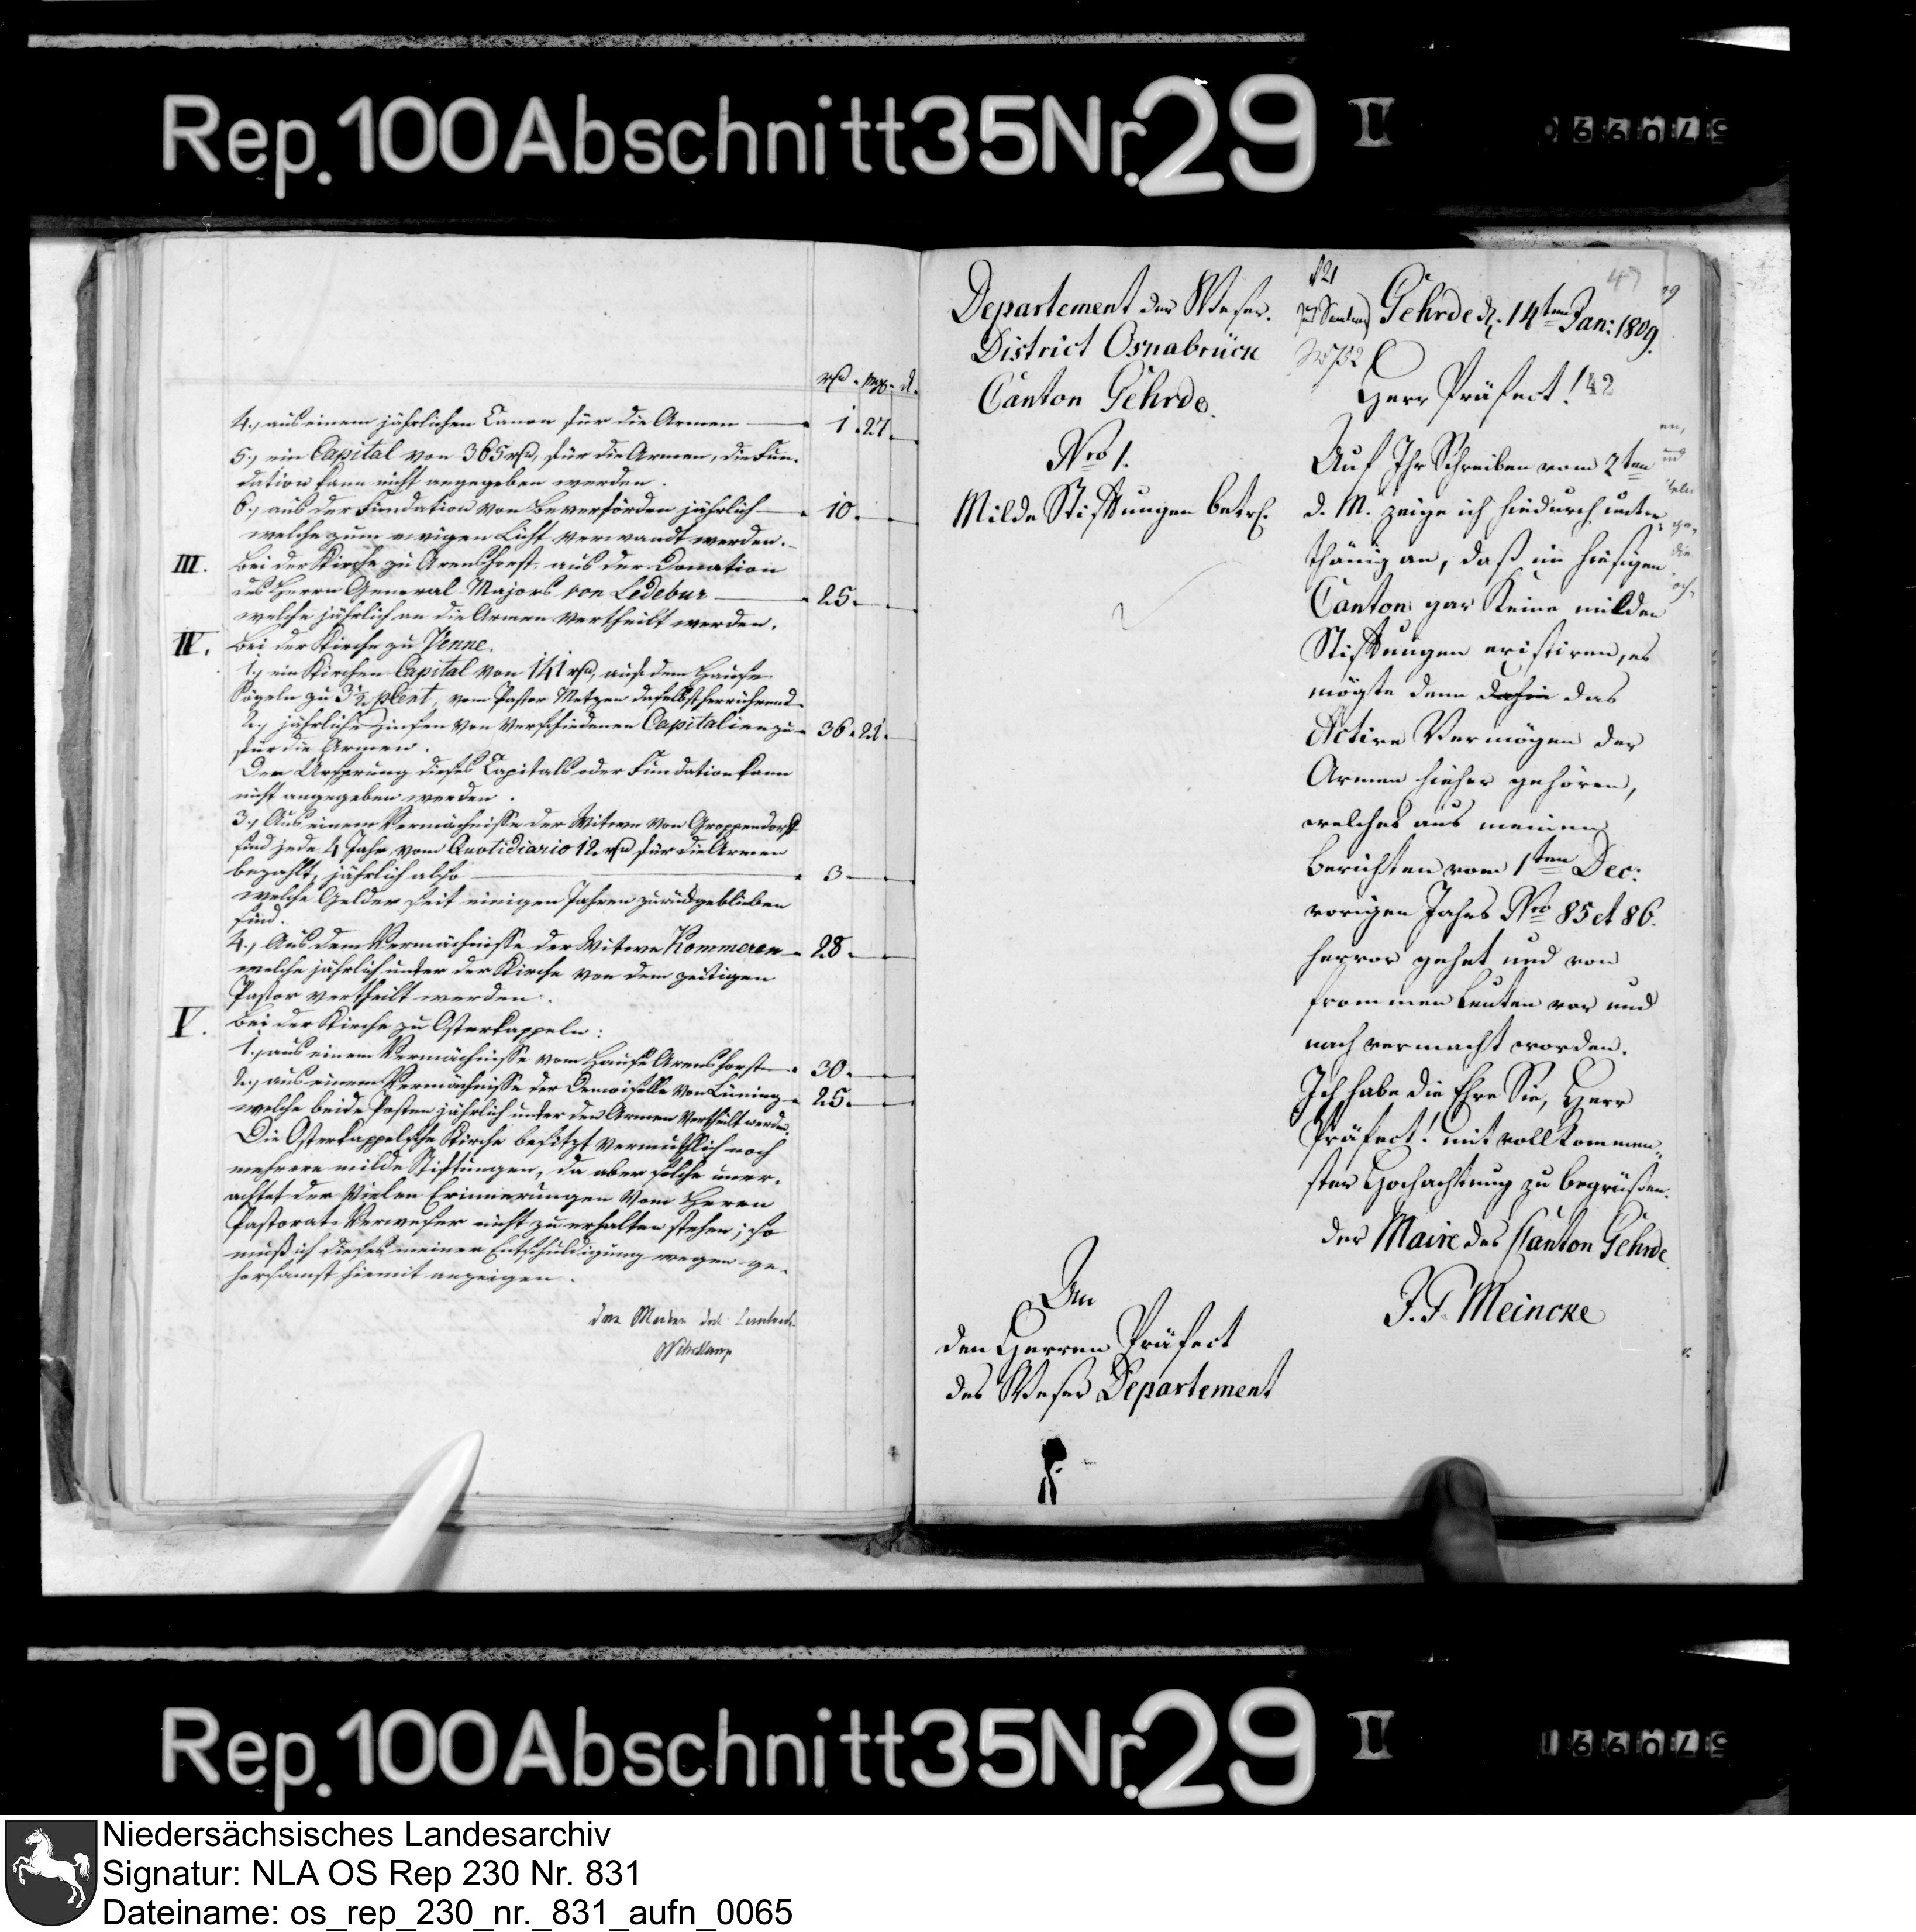 Rep. 100 Abschnitt 35 Nr. 29 II
rℳ. mgr. d.
4., aus einem jährlichen Canon für die Armen — 1. 27. —
5., ein Capital von 365 r, für die Armen, die Fun-
dation kann nicht angegeben werden.
6., aus der Fundation von Beverförden jährlich — 10. —
welche zum ewigen Licht verwandt werden.
III. Bei der Kirche zu Arenshorst aus der Donation
des Herrn General-Majors von Ledebur — 25. —
welche jährlich an die Armen vertheilt werden.
IV. Bei der Kirche zu Venne.
1., ein Kirchen Capital von 141 r, aus dem Hause
Kögeln zu 3½ pCent, vom Pastor Metzen daselbst herrührend
2., jährliche Zinsen von verschiedenen Capitalien zu 36. 21. —
für die Armen.
Der Ursprung dieses Capitals oder Fundation kann
nicht angegeben werden.
3., Aus einem Vermächnisse der Witwe von Groppendorf
sind jede 4 Jahr, vom Quotidiario 12 r für die Armen
bezahlt, jährlich also — 3. —
welche Gelder seit einigen Jahren zurückgeblieben
sind.
4., Aus dem Vermächnisse der Witwe Kommeren 28. —
welche jährlich unter der Kirche von dem zeitigen
Pastor vertheilt werden.
V. Bei der Kirche zu Osterkappeln:
1., aus einem Vermächnisse vom Hause Arenshorst 30. —
2., aus einem Vermächnisse der Demoiselle von Lüning 25. —
welche beide Posten jährlich unter den Armen vertheilt werden.
Die Osterkappelsche Kirche besitzt vermuthlich noch
mehrere milde Stiftungen, da aber solche uner-
achtet der vielen Erinnerungen vom Herrn
Pastorat-Verweser nicht zu erhalten stehen; so
muß ich dieses meiner Entschuldigung wegen ge-
horsamst hiemit anzeigen.
Der Maire des Cantons
Departement der Weser.
District Osnabrück
Canton Gehrde.
Nro 1.
Milde Stiftungen betr.
47
Gehrde d. 14ten Jan: 1809.
Herr Präfect!
42
Auf Ihr Schreiben vom 2ten
d. M. zeige ich hiedurch unter-
thänig an, daß im hiesigen
Canton gar Keine milden
Stiftungen existiren, es
mögte denn dahin das
Active Vermögen der
Armen hieher gehören,
welches aus meinen
Berichten vom 1ten Dec:
vorigen Jahrs Nro 85 et 86.
hervor gehet und von
frommen Leuten vor und
nach vermacht worden.
Ich habe die Ehre Sie, Herr
Präfect! mit vollkommen-
ster Hochachtung zu begrüßen.
Der Maire des Canton Gehrde
J. F. Meincke
An
den Herren Präfect
des Weser Departement
Rep. 100 Abschnitt 35 Nr. 29 II
Niedersächsisches Landesarchiv
Signatur: NLA OS Rep 230 Nr. 831
Dateiname: os_rep_230_nr._831_aufn_0065